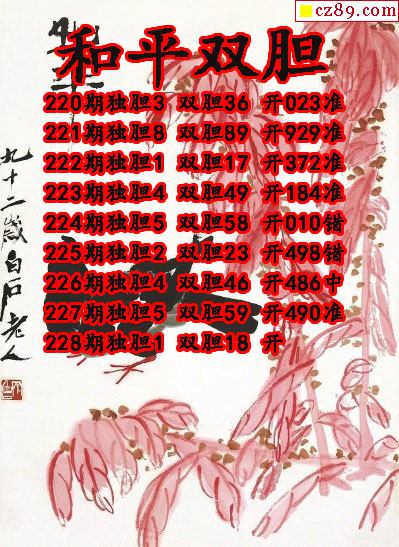 cz89.com
和平双胆
220期独胆3 双胆36 开023准
221期独胆8 双胆89 开929准
222期独胆1 双胆17 开372准
223期独胆4 双胆49 开184准
224期独胆5 双胆58 开010错
225期独胆2 双胆23 开498错
226期独胆4 双胆46 开486中
227期独胆5 双胆59 开490准
228期独胆1 双胆18 开
九十二岁白石老人